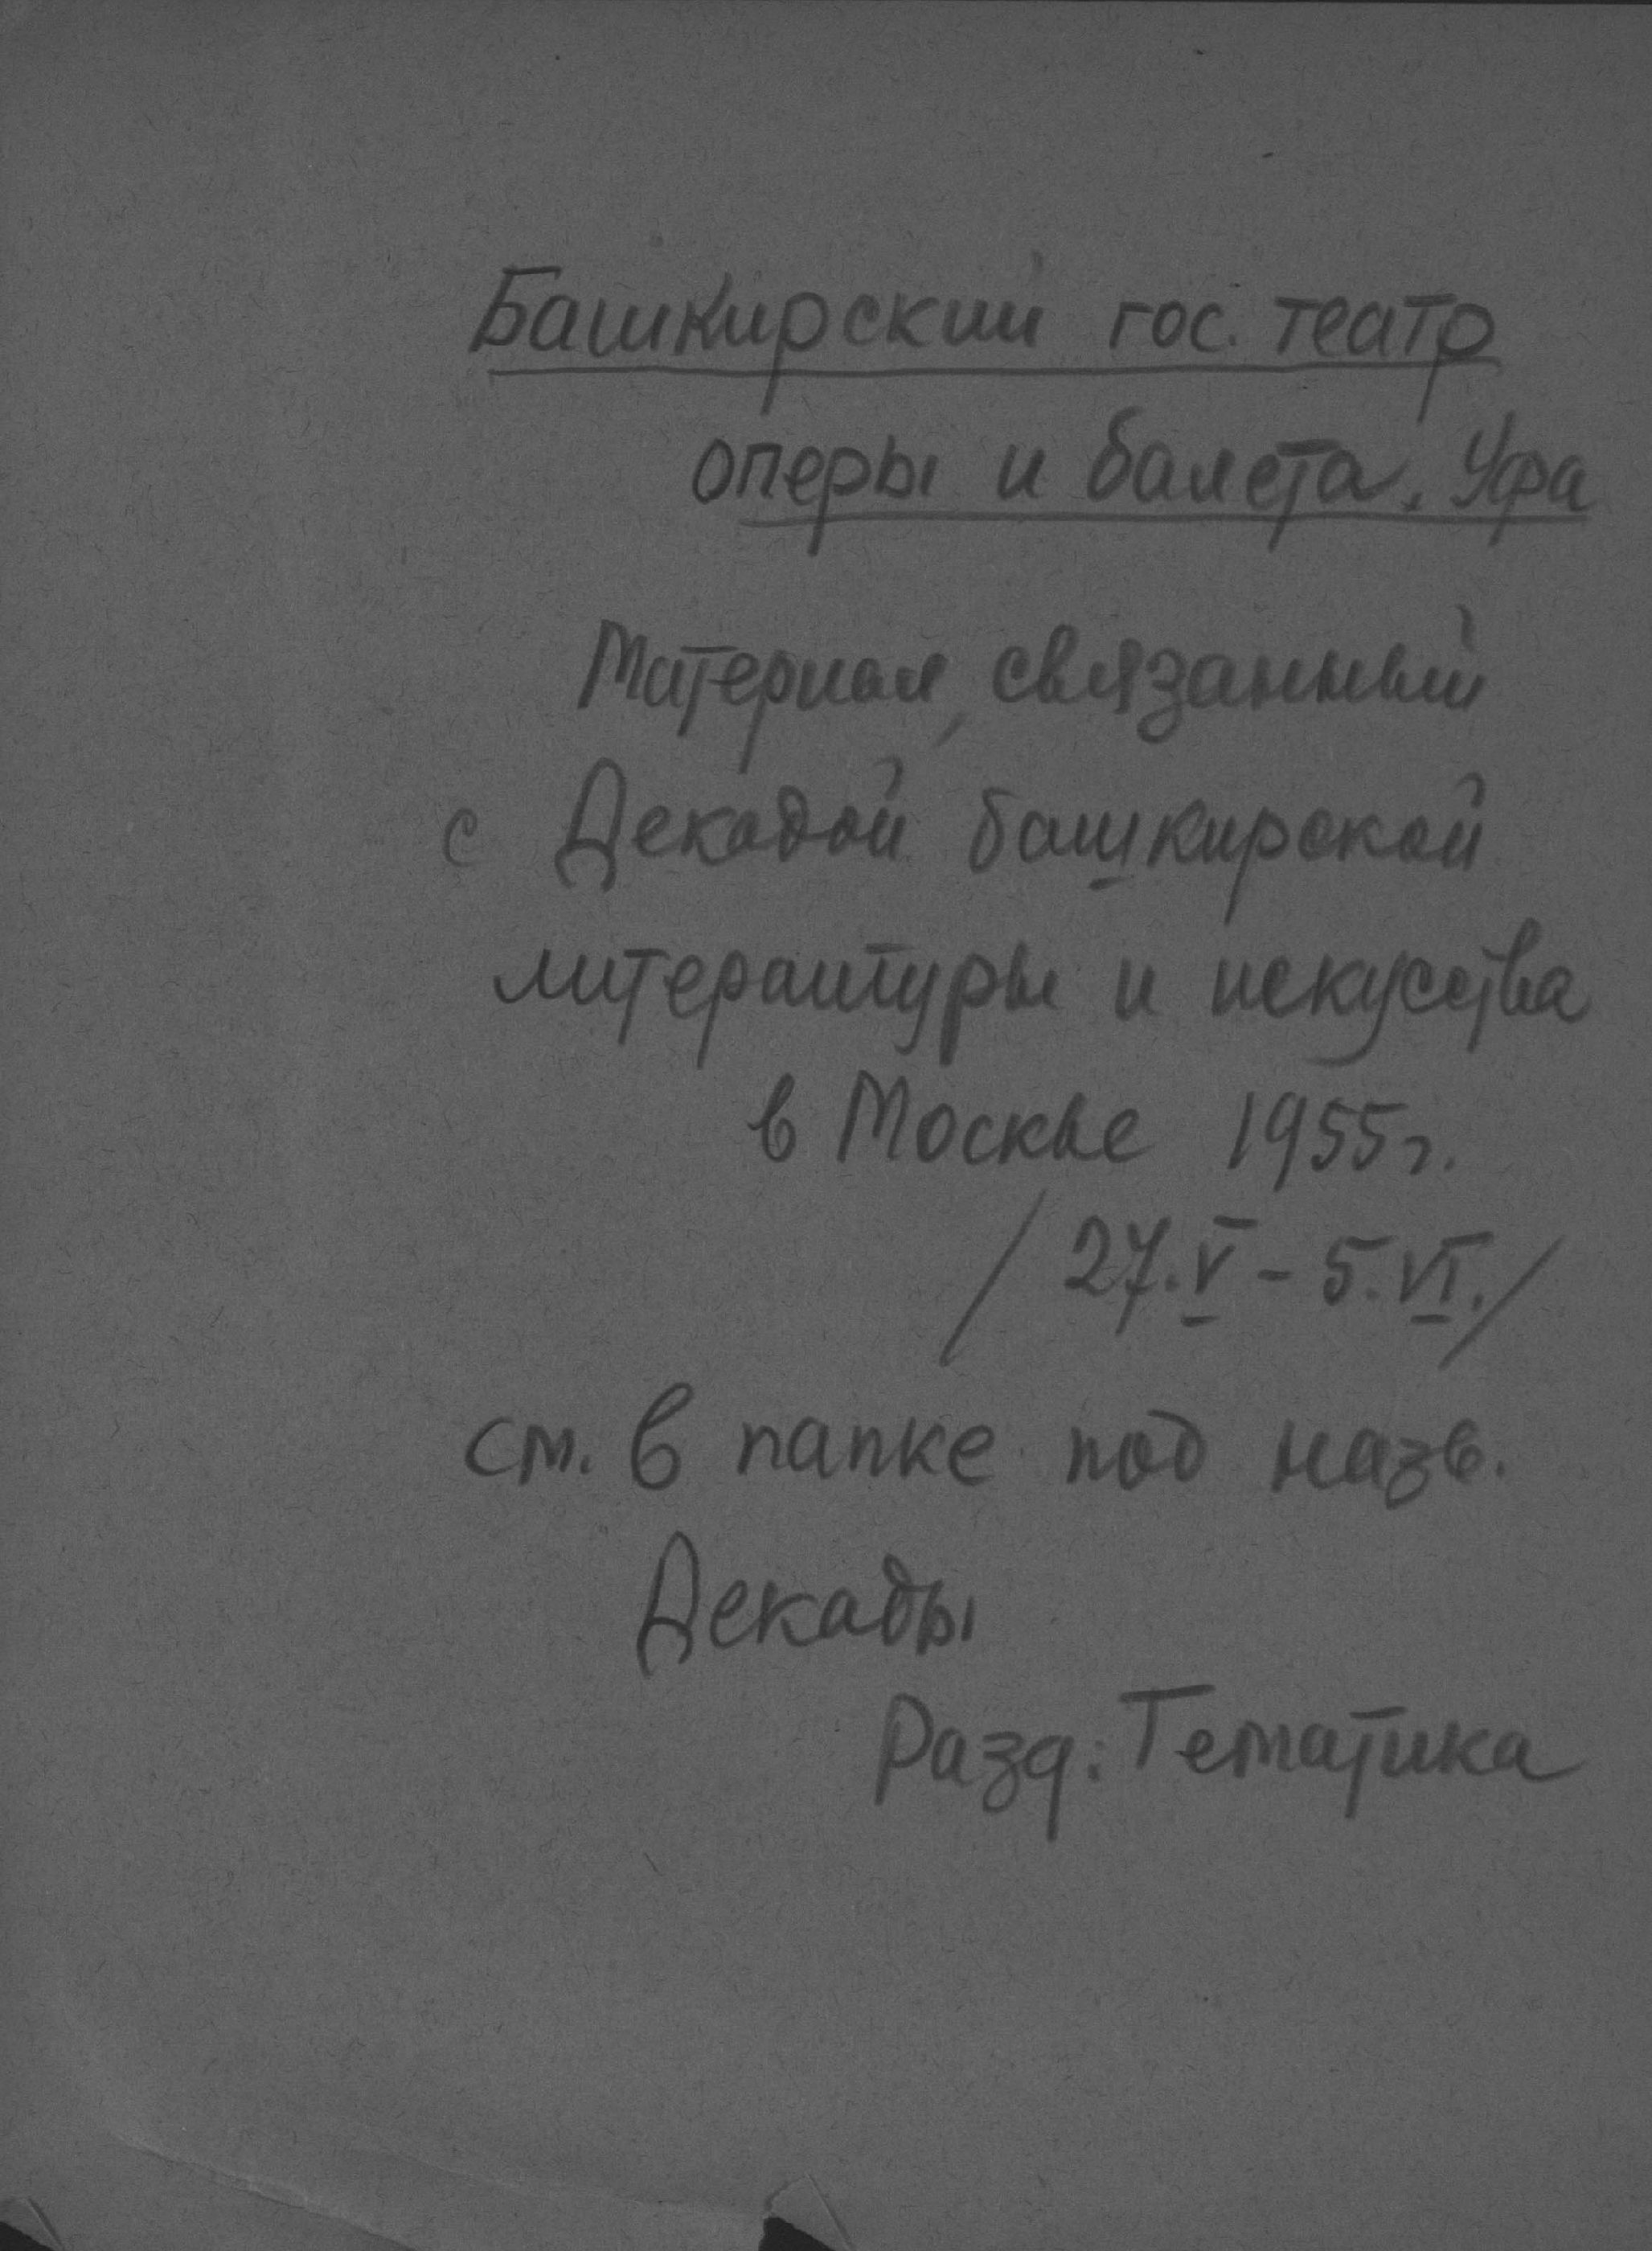 Башкирский гос. театр
оперы и балета. Уфа
Материал, связанный
с Декадой башкирской
литературы и искусства
в Москве 1955 г.
/ 27.V - 5.VI. /
см. в папке под назв.
Декады
Разд: Тематика